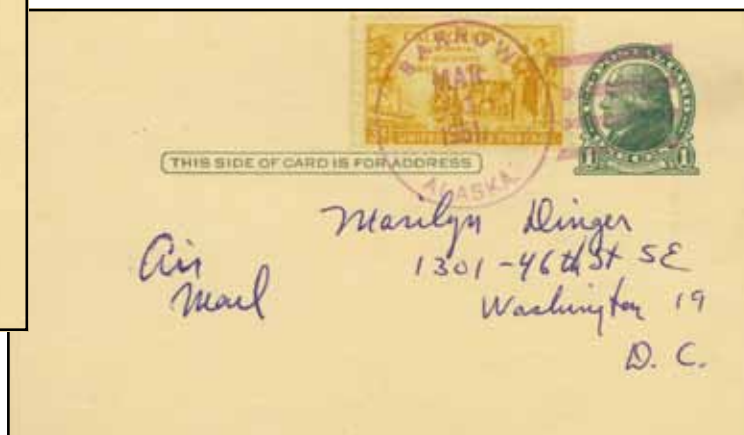 BARROW
MAR
1951
ALASKA
THIS SIDE OF CARD IS FOR ADDRESS
1 1
Air
Mail
Marilyn Dinger
1301-46th St SE
Washington 19
D. C.